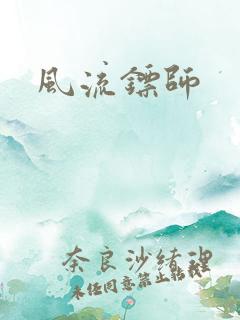 風流鏢師
奈良沙緒理
未经同意禁止転载